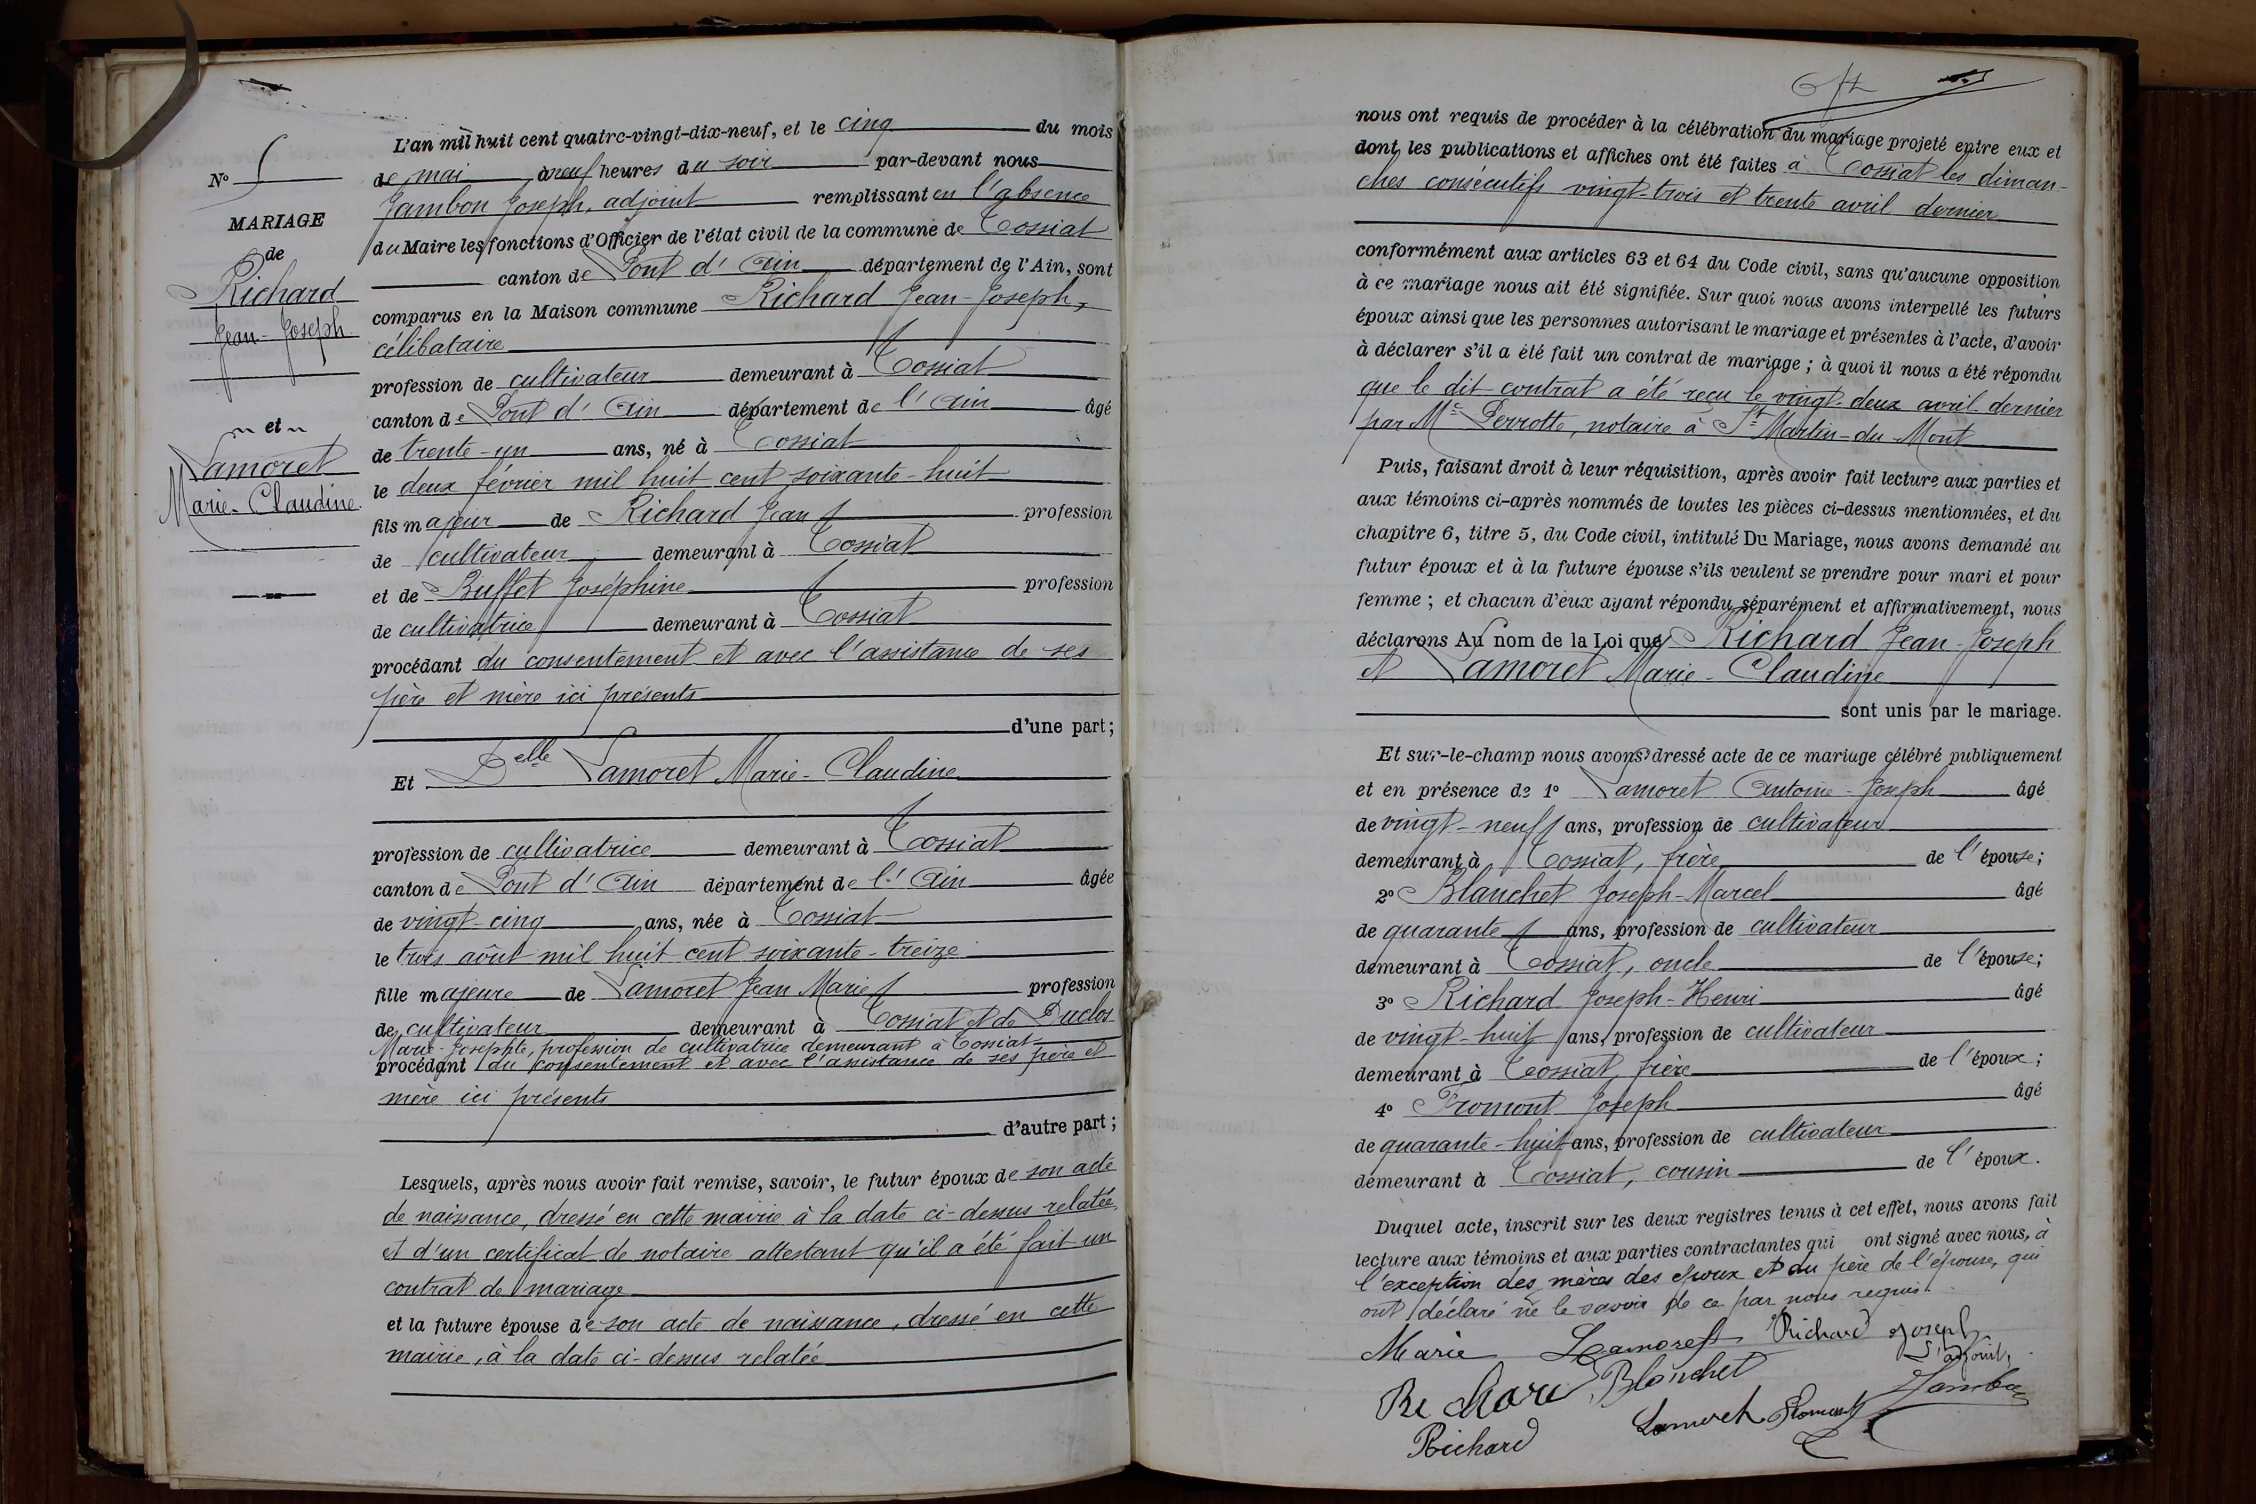 N° 5
MARIAGE
de
Richard
Jean-Joseph
et
Lamoret
Marie-Claudine
L'an mil huit cent quatre-vingt-dix-neuf, et le cinq du mois
de mai à neuf heures du soir par-devant nous
Jambon Joseph, adjoint remplissant en l'absence
du Maire les fonctions d'Officier de l'état civil de la commune de Tossiat
canton de Pont d'Ain département de l'Ain, sont
comparus en la Maison commune Richard Jean-Joseph,
célibataire
profession de cultivateur demeurant à Tossiat
canton de Pont d'Ain département de l'Ain âgé
de trente-un ans, né à Tossiat
le deux février mil huit cent soixante-huit
fils majeur de Richard Jean profession
de cultivateur demeurant à Tossiat
et de Buffet Joséphine profession
de cultivatrice demeurant à Tossiat
procédant du consentement et avec l'assistance de ses
père et mère ici présents
d'une part;
Et Delle Lamoret Marie-Claudine
profession de cultivatrice demeurant à Tossiat
canton de Pont d'Ain département de l'Ain âgée
de vingt-cinq ans, née à Tossiat
le trois août mil huit cent soixante-treize
fille majeure de Lamoret Jean Marie profession
de cultivateur demeurant à Tossiat et de Duclos
Marie-Josephte, profession de cultivatrice demeurant à Tossiat
procédant du consentement et avec l'assistance de ses père et
mère ici présents
d'autre part;
Lesquels, après nous avoir fait remise, savoir, le futur époux de son acte
de naissance, dressé en cette mairie à la date ci-dessus relatée,
et d'un certificat de notaire attestant qu'il a été fait un
contrat de mariage
et la future épouse de son acte de naissance, dressé en cette
mairie, à la date ci-dessus relatée
nous ont requis de procéder à la célébration du mariage projeté entre eux et
dont les publications et affiches ont été faites à Tossiat les diman-
ches consécutifs vingt-trois et trente avril dernier
conformément aux articles 63 et 64 du Code civil, sans qu'aucune opposition
à ce mariage nous ait été signifiée. Sur quoi nous avons interpellé les futurs
époux ainsi que les personnes autorisant le mariage et présentes à l'acte, d'avoir
à déclarer s'il a été fait un contrat de mariage; à quoi il nous a été répondu
que le dit contrat a été reçu le vingt-deux avril dernier
par Me Perrotte, notaire à St Martin-du-Mont
Puis, faisant droit à leur réquisition, après avoir fait lecture aux parties et
aux témoins ci-après nommés de toutes les pièces ci-dessus mentionnées, et du
chapitre 6, titre 5, du Code civil, intitulé Du Mariage, nous avons demandé au
futur époux et à la future épouse s'ils veulent se prendre pour mari et pour
femme; et chacun d'eux ayant répondu séparément et affirmativement, nous
déclarons Au nom de la Loi que Richard Jean-Joseph
et Lamoret Marie-Claudine
sont unis par le mariage.
Et sur-le-champ nous avons dressé acte de ce mariage célébré publiquement
et en présence de 1° Lamoret Antoine-Joseph âgé
de vingt-neuf ans, profession de cultivateur
demeurant à Tossiat, frère de l'épouse;
2° Blanchet Joseph-Marcel âgé
de quarante ans, profession de cultivateur
demeurant à Tossiat, oncle de l'épouse;
3° Richard Joseph-Henri âgé
de vingt-huit ans, profession de cultivateur
demeurant à Tossiat, frère de l'époux;
4° Fromont Joseph âgé
de quarante-huit ans, profession de cultivateur
demeurant à Tossiat, cousin de l'époux.
Duquel acte, inscrit sur les deux registres tenus à cet effet, nous avons fait
lecture aux témoins et aux parties contractantes qui ont signé avec nous, à
l'exception des mères des époux et du père de l'épouse, qui
ont déclaré ne le savoir de ce par nous requis.
Marie Lamoret Richard Joseph
L'adjoint,
Richard Blanchet Jambon
Lamoret Fromont
Richard